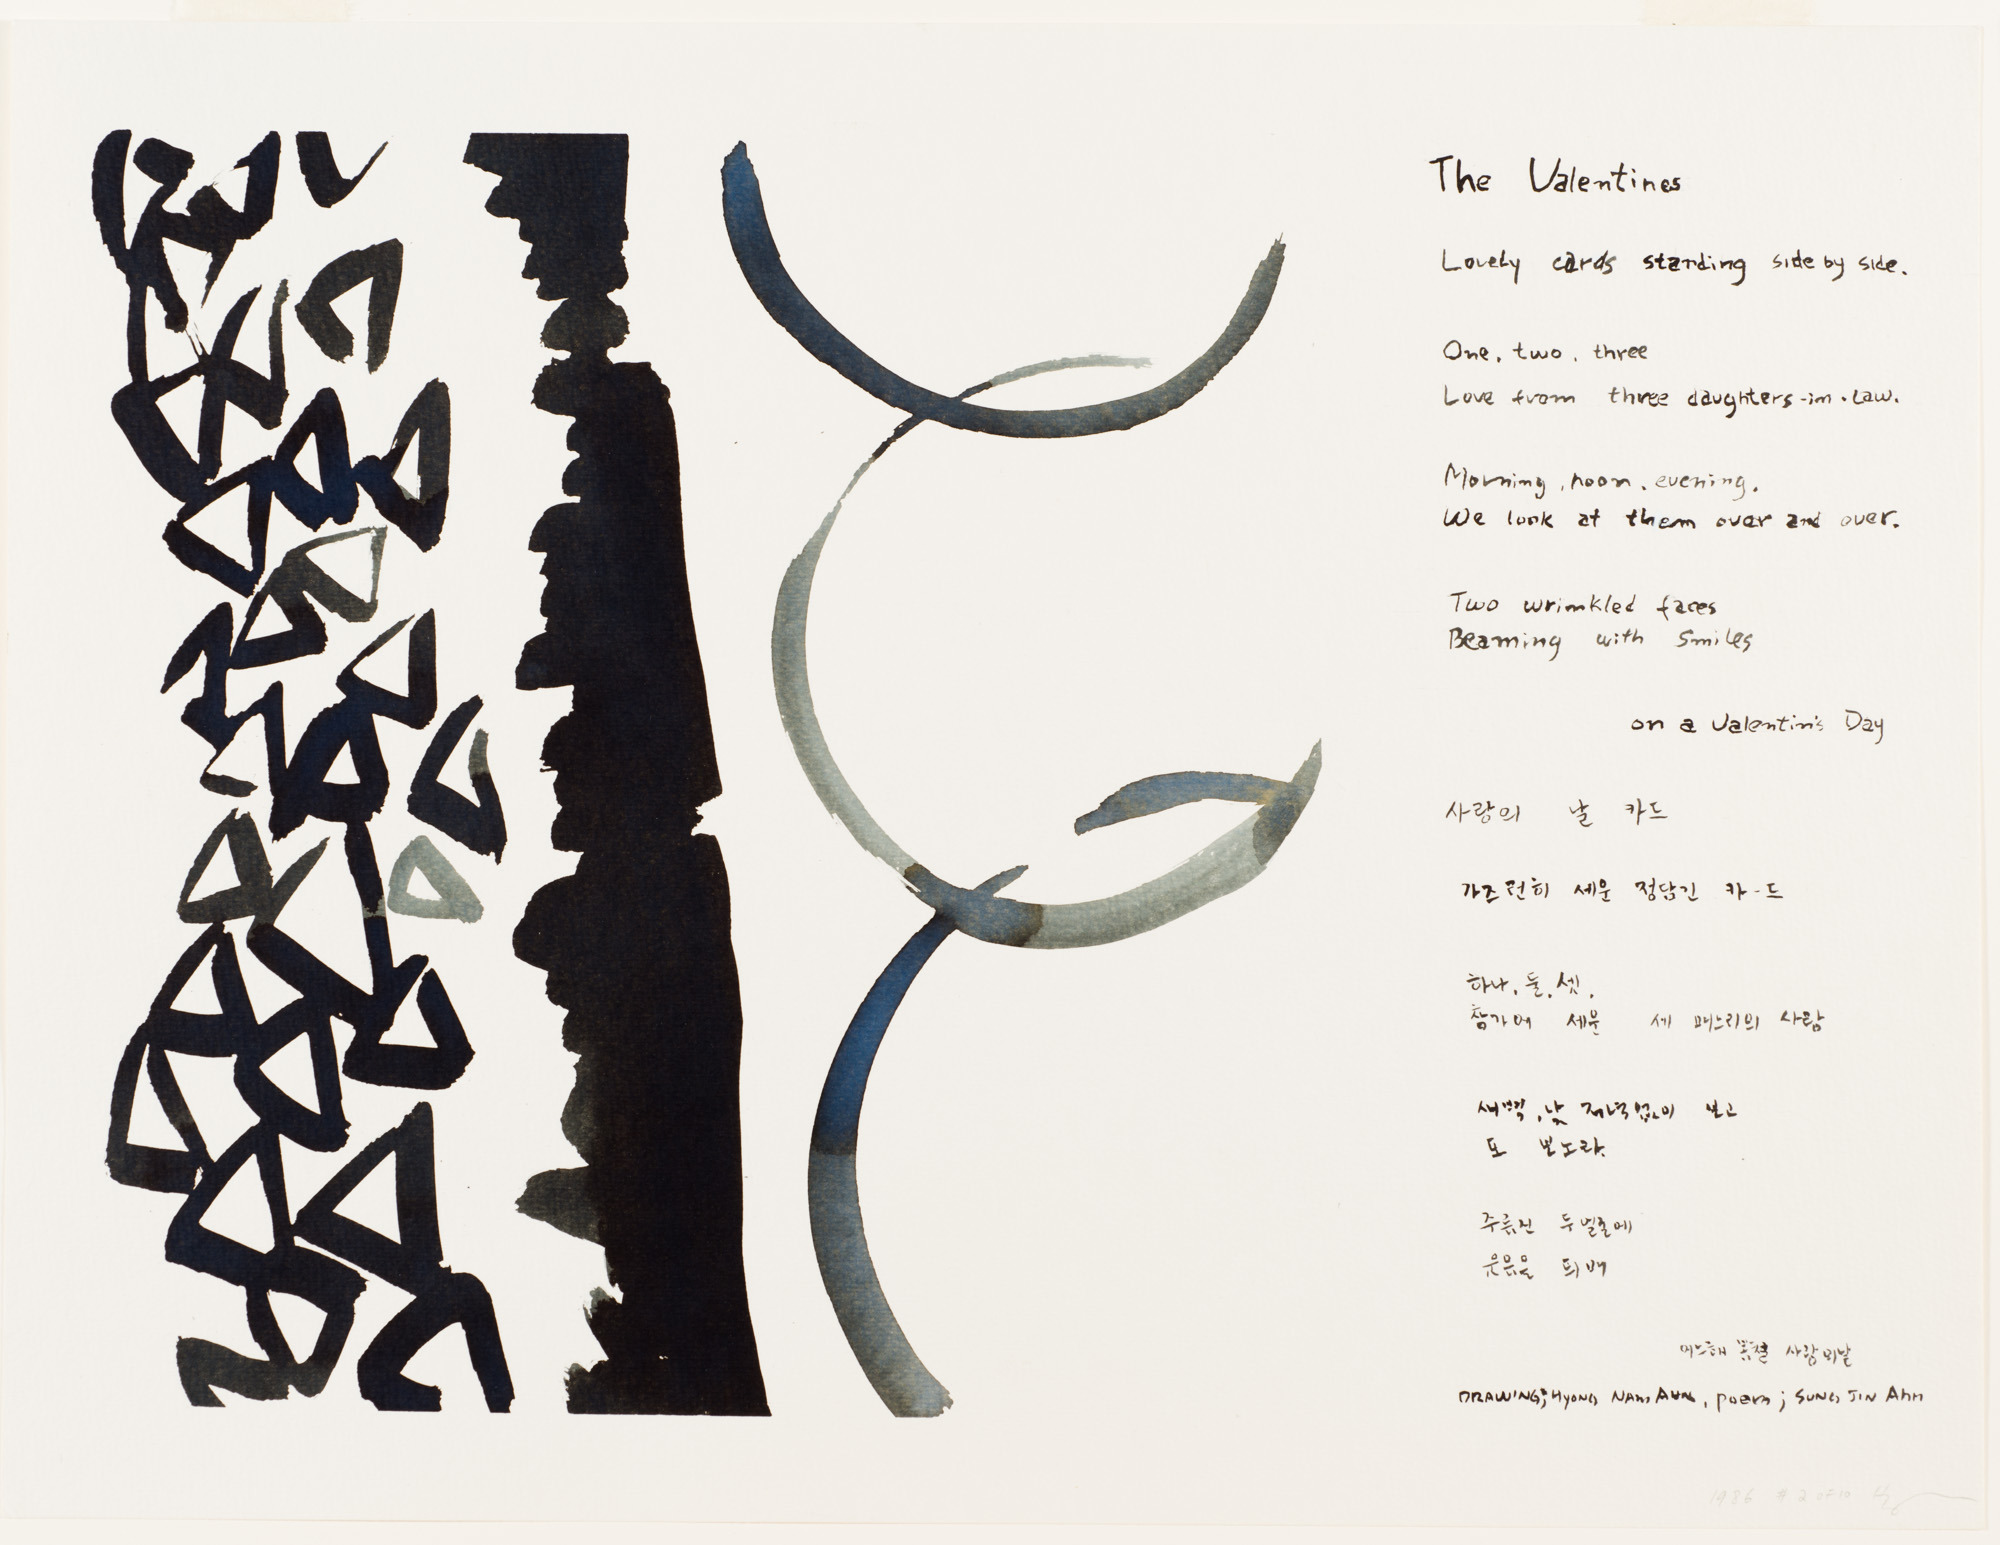 The Valentines
Lovely cards standing side by side.
One, two, three
Love from three daughters-in-law.
Morning, noon, evening.
We look at them over and over.
Two wrinkled faces
Beaming with smiles
on a Valentin's Day
사랑의 날 카드
가즈런히 세운 정담긴 카-드
하나, 둘, 셋,
창가에 세운 세 며느리의 사랑
새벽, 낮 저녁없이 보고
또 보노라.
주름진 두얼굴에
웃음을 띄
어느해 사랑의날
DRAWING; HYONG NAM AHN, poem; SUNG JIN Ahn
1986 # 2 of 10